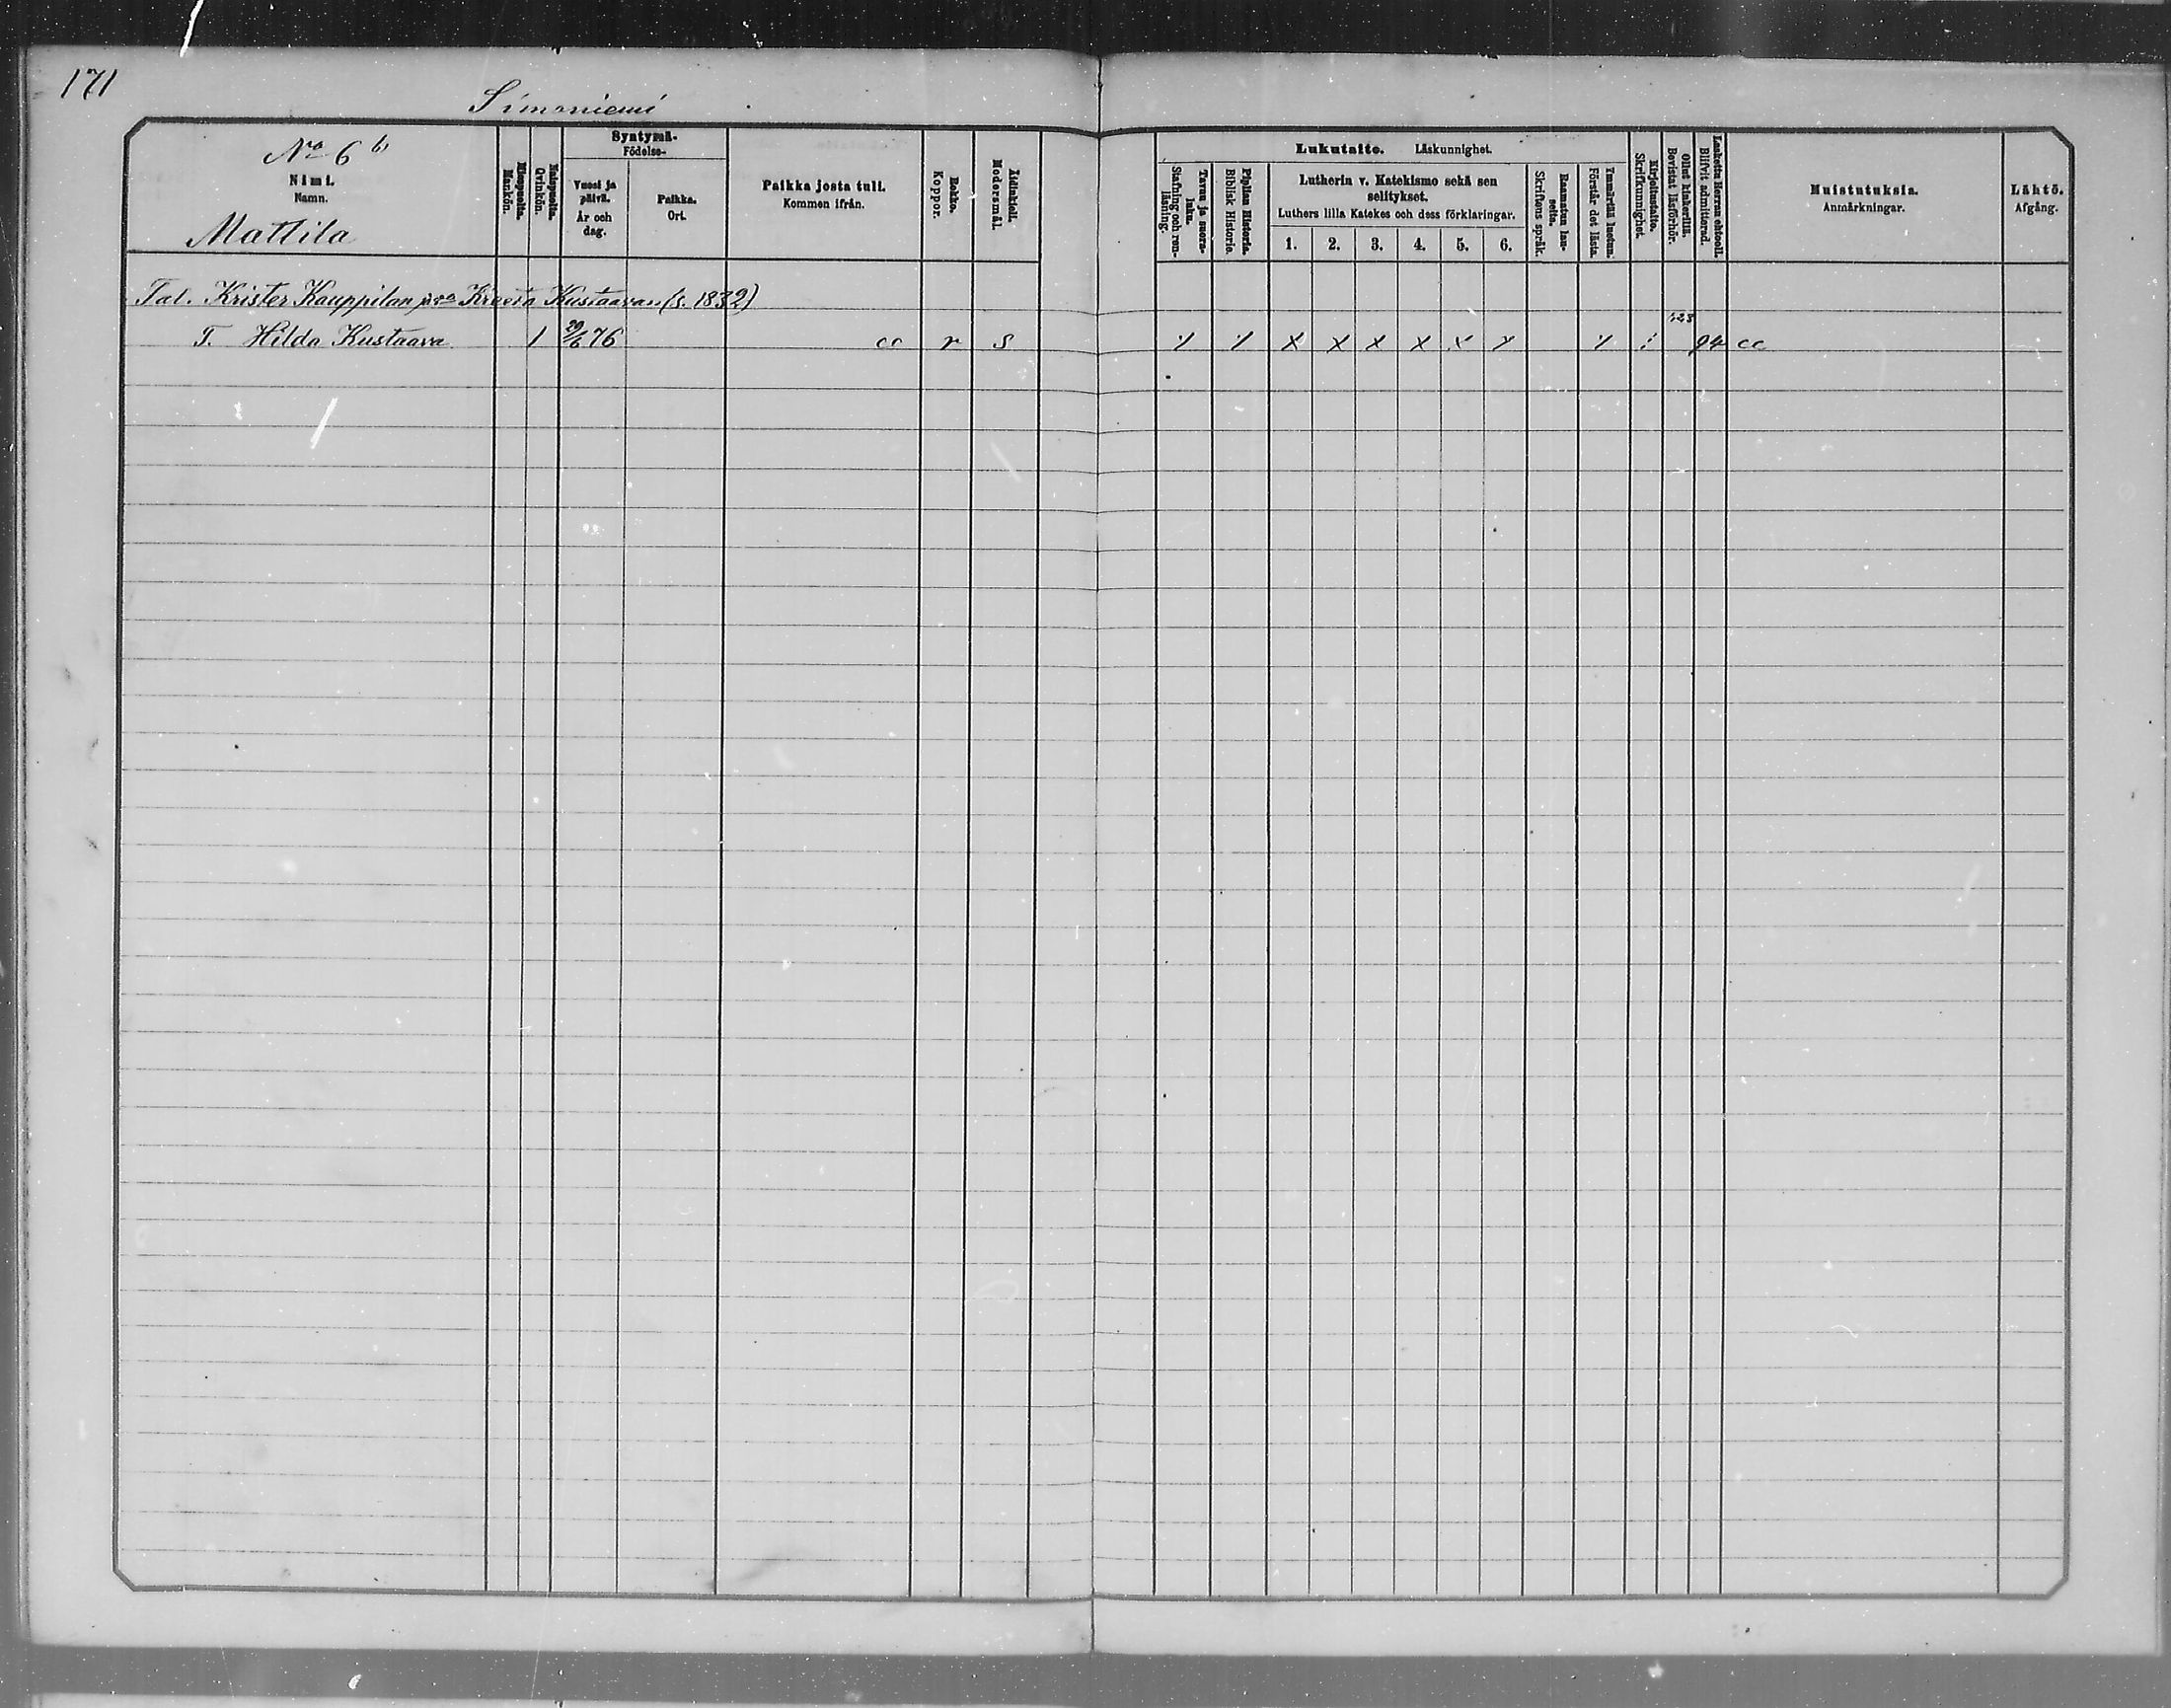 171
Simoniemi
No 6 b
Nimi.
Namn.
Mattila
Miespuolia.
Mankön.
Naispuolia.
Qvinkön.
Syntymä-
Födelse-
Vuosi ja päivä.
År och dag.
Paikka.
Ort.
Paikka josta tuli.
Kommen ifrån.
Rokko.
Koppor.
Äidinkieli.
Modersmål.
Lukutaito. Läskunnighet.
Tavuu ja suora-luku.
Stafning och ren-läsning.
Piplian Historia.
Biblisk Historie.
Lutherin v. Katekismo sekä sen
selitykset.
Luthers lilla Katekes och dess förklaringar.
1. 2. 3. 4. 5. 6.
Raamatun lau-seita.
Skriftens språk.
Ymmärtää luetun.
Förstår det lästa.
Kirjoitustaito.
Skrifkunnighet.
Ollut kinkerillä.
Bevistat läsförhör.
Laskettu Herran ehtooll.
Blifvit admitterad.
Muistutuksia.
Anmärkningar.
Lähtö.
Afgång.
Tal. Krister Kauppilan Kreeta Kustaavan (s. 1832)
T. Hilda Kustaava 1 29/6 76 cc r s x x x x x x x x x 94 cc